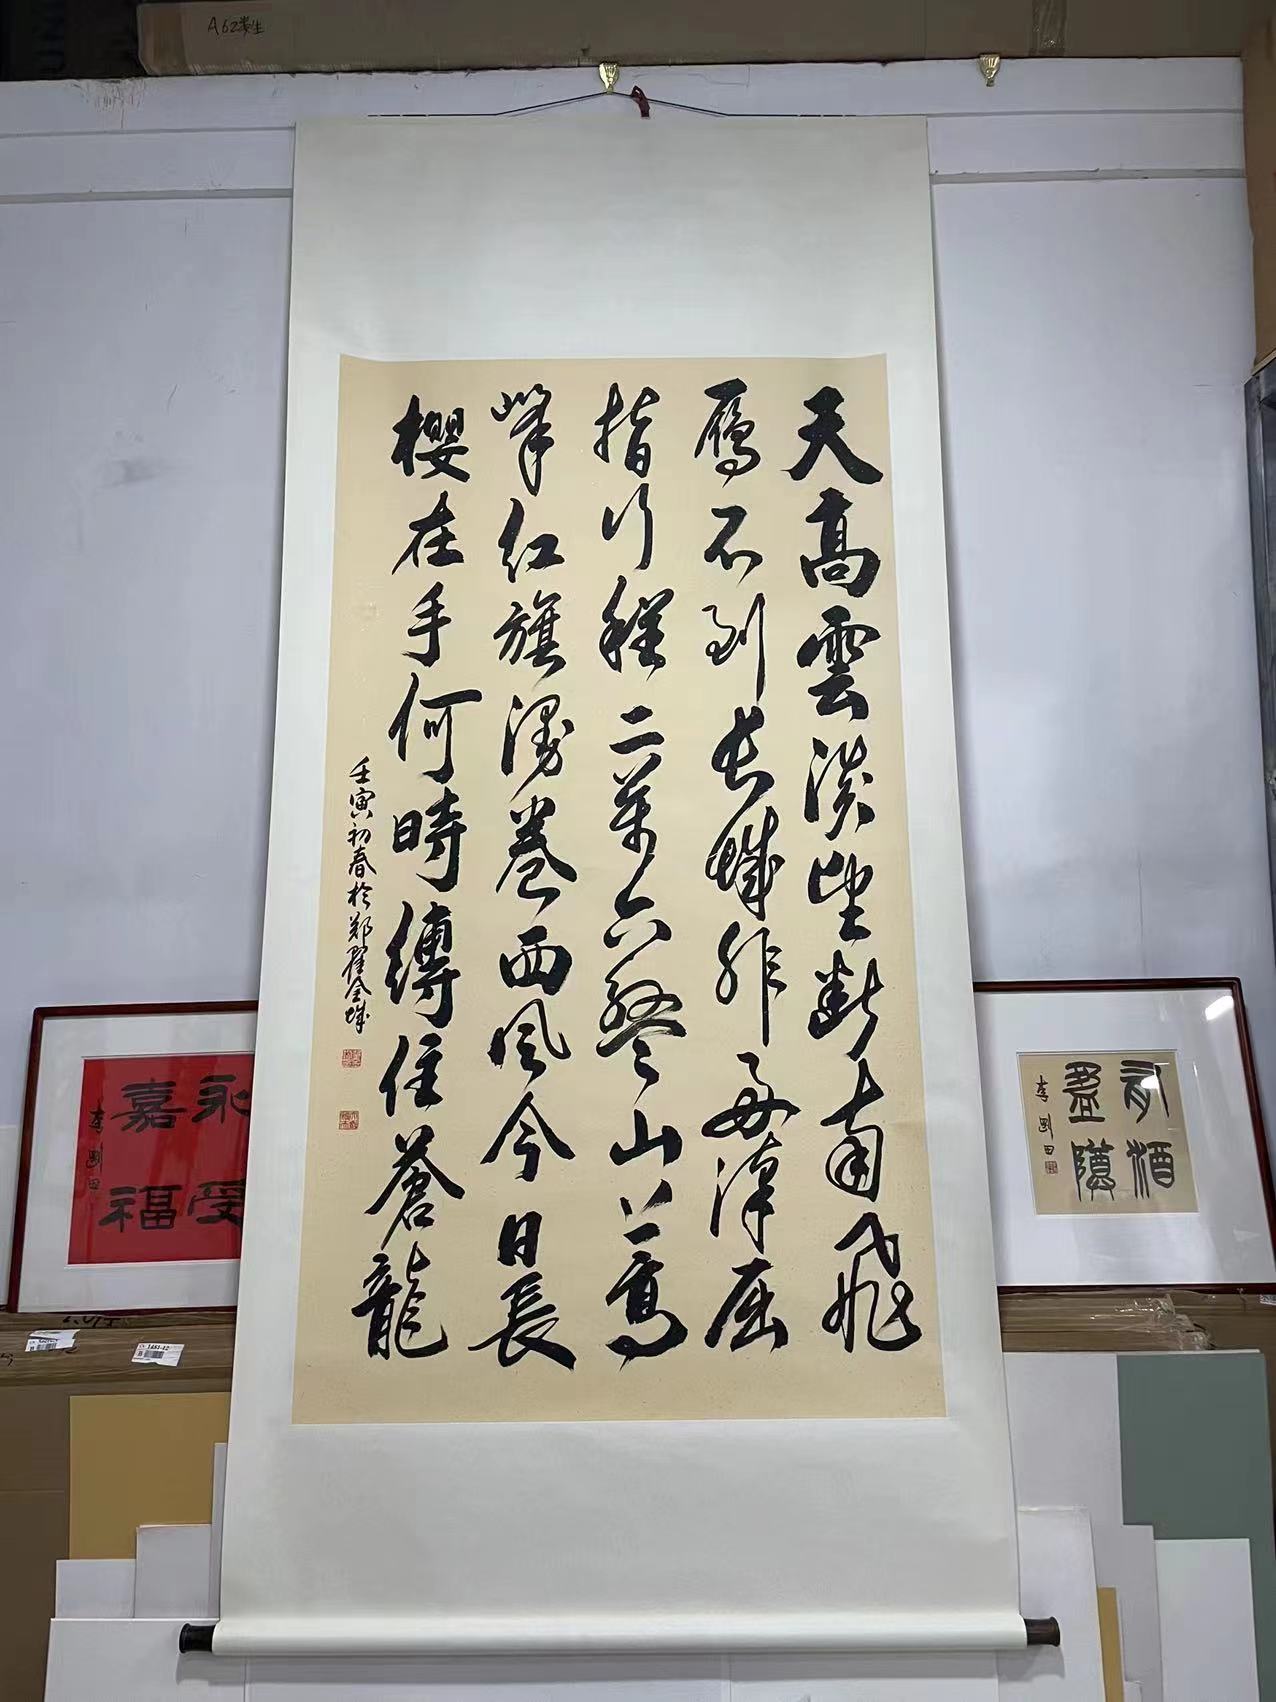 天高雲淡望斷南飛
雁不到长城非好漢屈
指行程二萬六盤山上高
峯红旗漫卷西风今日長
櫻在手何時縛住蒼龍
壬寅初春於郑翟全城
永受
嘉福
李刚田
有酒
盈
李刚田